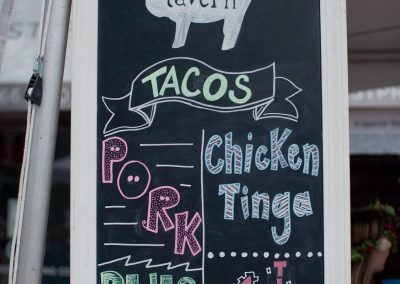 tavern
TACOS
PORK
Chicken
Tinga